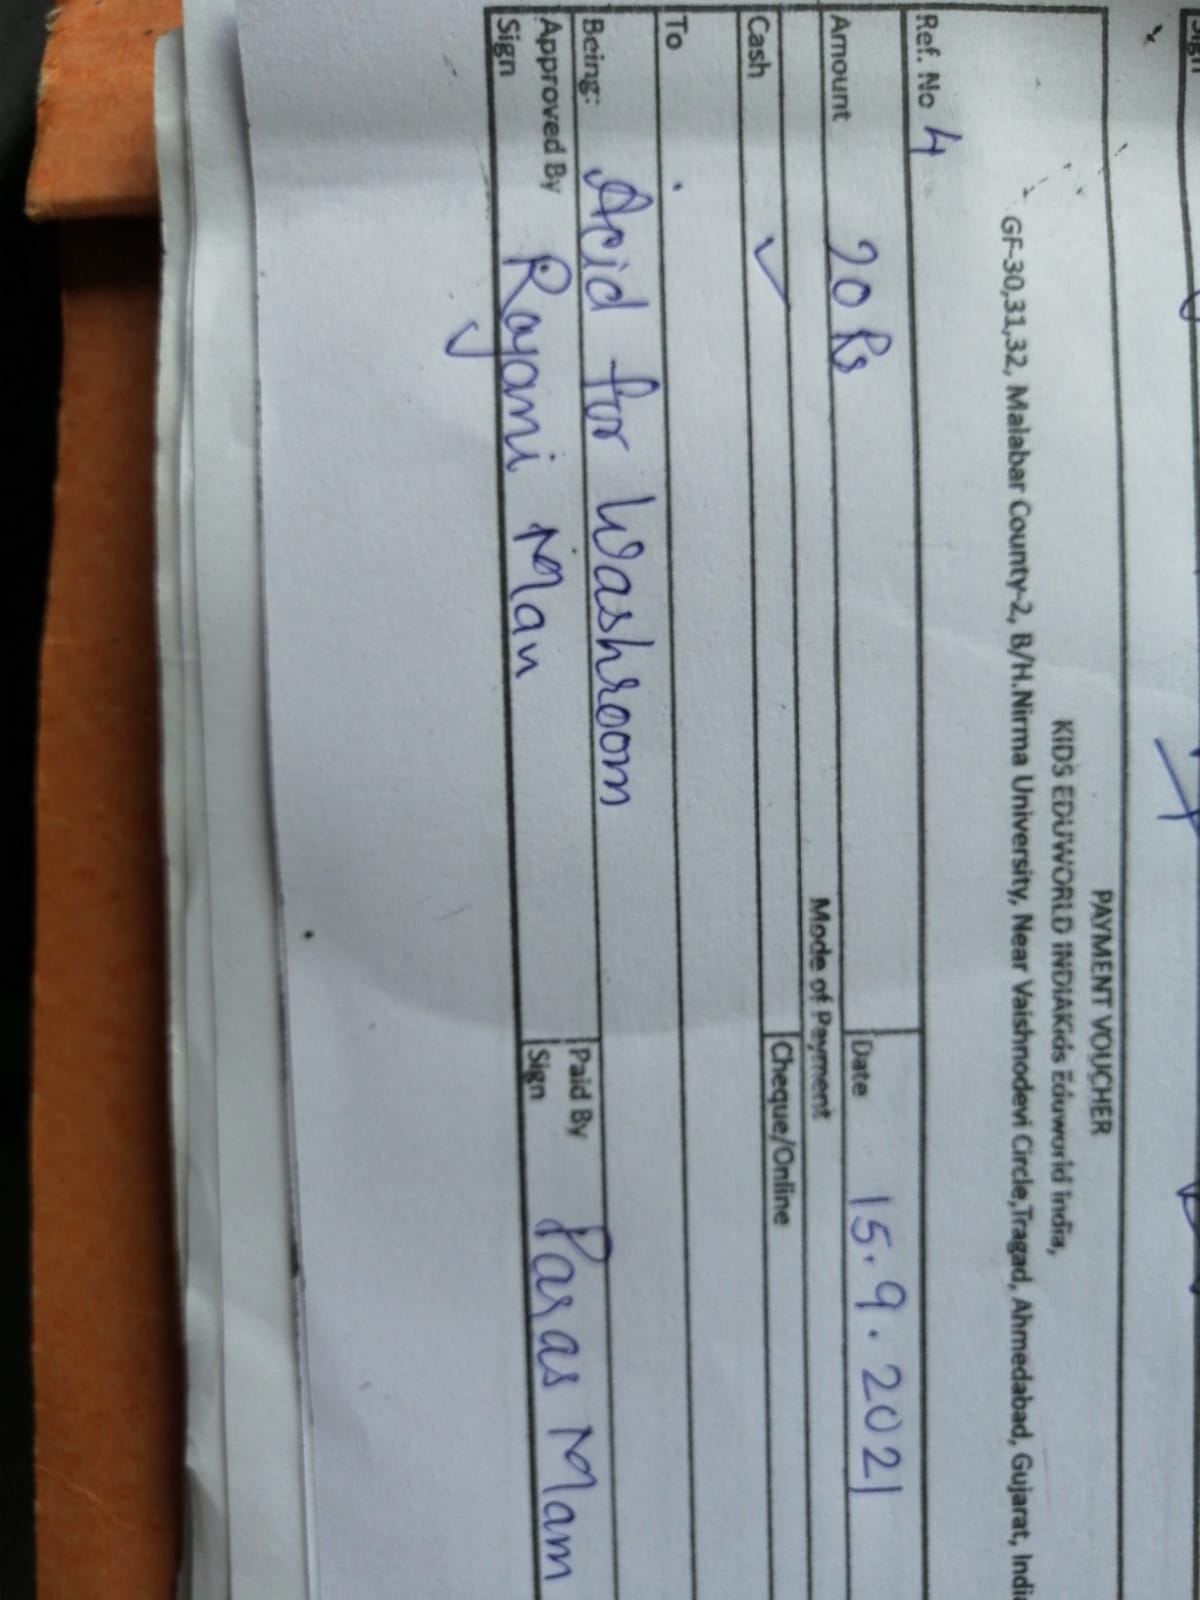 PAYMENT VOUCHER
KIDS EDUWORLD INDIAKids Eduworld india,
GF-30,31,32, Malabar County-2, B/H.Nirma University, Near Vaishnodevi Circle,Tragad, Ahmedabad, Gujarat, Indi
Ref. No 4
Amount 20 Rs Date 15.9.2021
Mode of Payment
Cash ✓ Cheque/Online
To
Being: Acid for Washroom
Approved By Rayani Man Paid By Paras Mam
Sign Sign